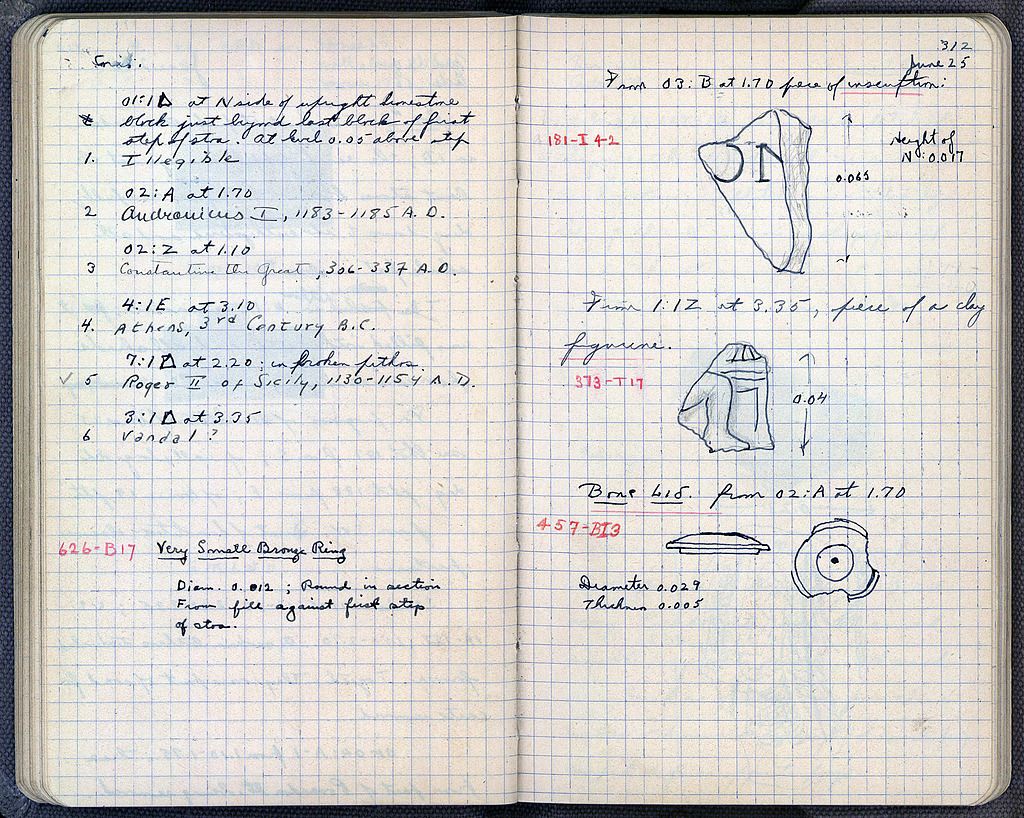 Coins.
01:1Δ at N side of upright limestone
block just beyond last block of first
step of stoa. At level 0.05 above step
1. Illegible
02:A at 1.70
2 Andronicus I, 1183-1185 A.D.
02:Z at 1.10
3 Constantine the Great, 306-337 A.D.
4:1E at 3.10
4. Athens, 3rd Century B.C.
7:1Δ at 2.20; in broken pithos.
✓ 5 Roger II of Sicily, 1130-1154 A.D.
3:1Δ at 3.35
6 Vandal?
626-B17 Very Small Bronze Ring
Diam. 0.012; Round in section
From fill against first step
of stoa.
312
June 25
From 03:B at 1.70 piece of inscription:
181-I 42
ON
Height of
N: 0.017
0.065
From 1:1Z at 3.35, piece of a clay
figurine.
373-T17
0.04
Bone Lid. from 02:A at 1.70
457-BI3
Diameter 0.029
Thickness 0.005